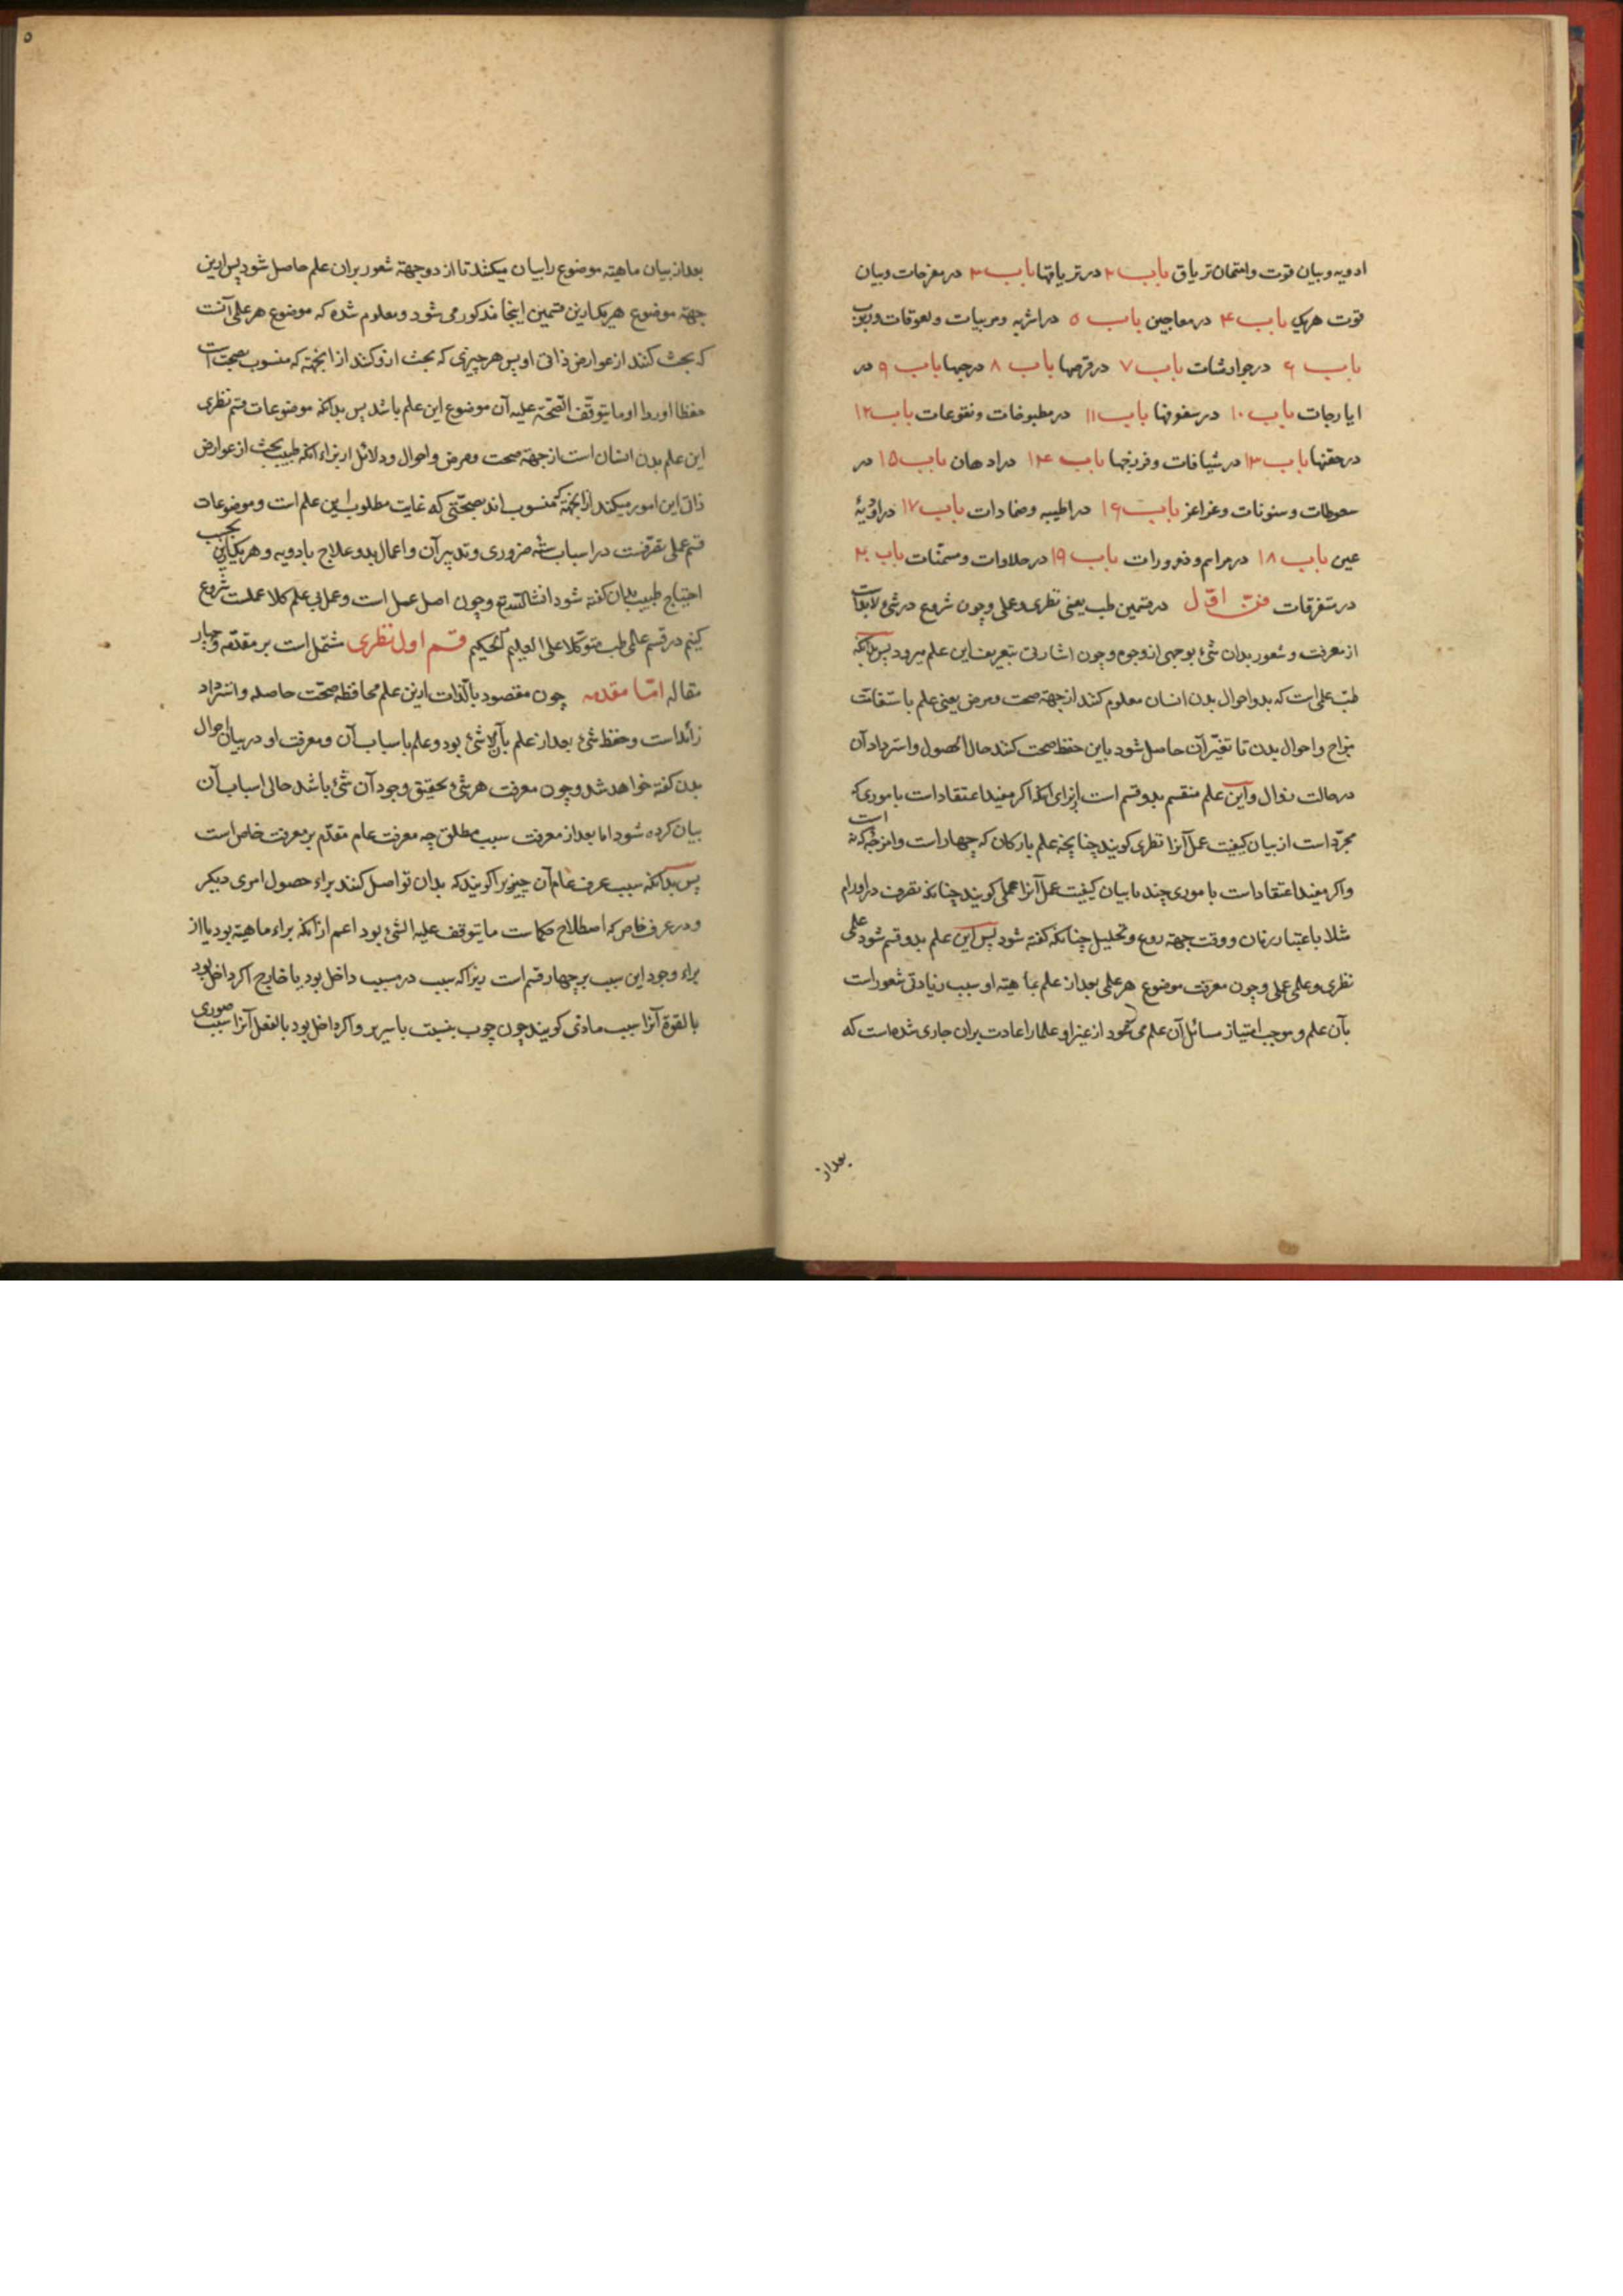 ادویه و بیان قوت و امتحان تریاق باب ۲ در تریاقها باب ۳ در مفرحات و بیان
قوت هریک باب ۴ در معاجین باب ۵ در اشربه و مربیات و لعوقات و ربوب
باب ۶ در جوارشات باب ۷ در قرصها باب ۸ در حبها باب ۹ در
ایارجات باب ۱۰ در سفوفها باب ۱۱ در مطبوخات و نقوعات باب ۱۲
در حقنها باب ۱۳ در شیافات و فرزجها باب ۱۴ در ادهان باب ۱۵ در
سعوطات و سنونات و غراغر باب ۱۶ در اطلیه و ضمادات باب ۱۷ در ادویهٔ
عین باب ۱۸ در مراهم و ذرورات باب ۱۹ در حلاوات و مسمّنات باب ۲۰
در متفرقات فنّ اوّل در قسمین طب یعنی نظری و عملی و چون شروع در شیٔ لابد است
از معرفت و شعور بدان شیٔ بوجهی از وجوه و چون اشارتی بتعریف این علم میرود پس بدانکه
طبّ علمی است که بدو احوال بدن انسان معلوم کنند از جهة صحت و مرض یعنی علم باستقامت
مزاج و احوال بدن تا تغیّر آن حاصل شود باین حفظ صحت کنند حال الحصول و استرداد آن
در حالت زوال و این علم منقسم بدو قسم است از برای آنکه اگر مفید اعتقادات باموری که
مجرّد است از بیان کیفیت عمل آنرا نظری کویند چنانچه علم بارکان که چهار است و امزجه که نه است
و اکر مفید اعتقادات باموری چند با بیان کیفیت عمل آنرا عملی کویند چنانکه تصرف در اورام
مثلا باعتبار زمان و وقت جهة ردع و تحلیل چنانکه کفته شود پس این علم بدو قسم شود علمی
نظری و علمی عملی و چون معرفت موضوع هر علمی بعد از علم بماهیة او سبب زیادتی شعور است
بآن علم و موجب امتیاز مسائل آن علم می شود از غیر او و علما را عادت بران جاری شده است که
بعد از
۵
بعد از بیان ماهیة موضوع را بیان میکنند تا از دو جهة شعور بران علم حاصل شود پس ازین
جهة موضوع هریک ازین قسمین اینجا مذکور می شود و معلوم شده که موضوع هر علمی آنست
که بحث کنند از عوارض ذاتی او پس هر چیزی که بحث ازو کنند از انجهة که منسوب بصحت است
حفظا او ردا او ما یتوقّف الصّحة علیه آن موضوع این علم باشد پس بدانکه موضوعات قسم نظری
این علم بدن انسان است از جهة صحت و مرض و احوال و دلائل از براء آنکه طبیب بحث از عوارض
ذاتی این امور میکند از انجهة که منسوب اند بصحّتی که غایت مطلوب این علم است و موضوعات
قسم عملی تصرّفست در اسباب ستّه ضروری و تدبیر آن و اعمال بدو علاج بادویه و هریک را بحسب
احتیاج طبیب بدان کفته شود انشا الله تع و چون اصل عمل است و عمل بی علم کلا عملست شروع
کنیم در قسم علمی طب متوکلا علی العلیم الحکیم قسم اول نظری مشتمل است بر مقدّمه و چهار
مقاله امّا مقدمه چون مقصود بالّذات ازین علم محافظه صحّت حاصله و استرداد
زائد است و حفظ شیٔ بعد از علم بآن شیٔ بود و علم باسباب آن و معرفت او در بیان احوال
بدن کفته خواهد شد و چون معرفت هر شیٔ و تحقیق وجود آن شیٔ باشد حالی اسباب آن
بیان کرده شود اما بعد از معرفت سبب مطلق چه معرفت عام مقدّم بر معرفت خاص است
پس بدانکه سبب عرف عام آن چیز را کویند که بدان تواصل کنند براء حصول امری دیکر
و در عرف خاص که اصطلاح حکماست ما یتوقف علیه الشئ بود اعم از آنکه براء ماهیة بود یا از
براء وجود این سبب بر چهار قسم است زیرا که سبب در مسبب داخل بود یا خارج اکر داخل بود
بالقوة آنرا سبب مادّی کویند چون چوب بنسبت با سریر و اکر داخل بود بالفعل آنرا سبب صوری